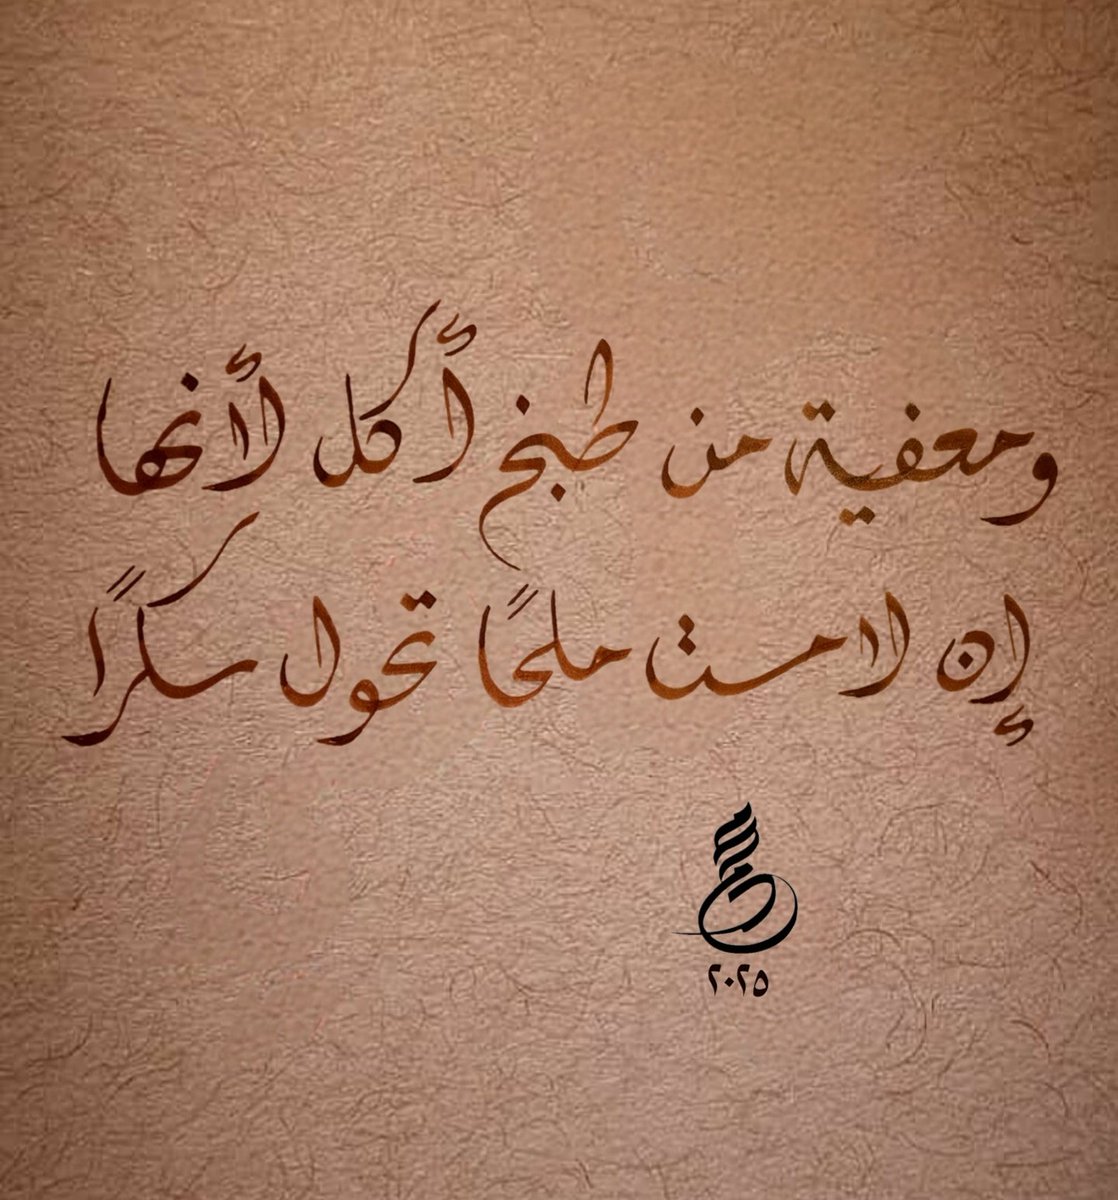 ومعفية من طبخ أكل لأنها
إن لامست ملحًا تحول سكرًا
٢٠٢٥